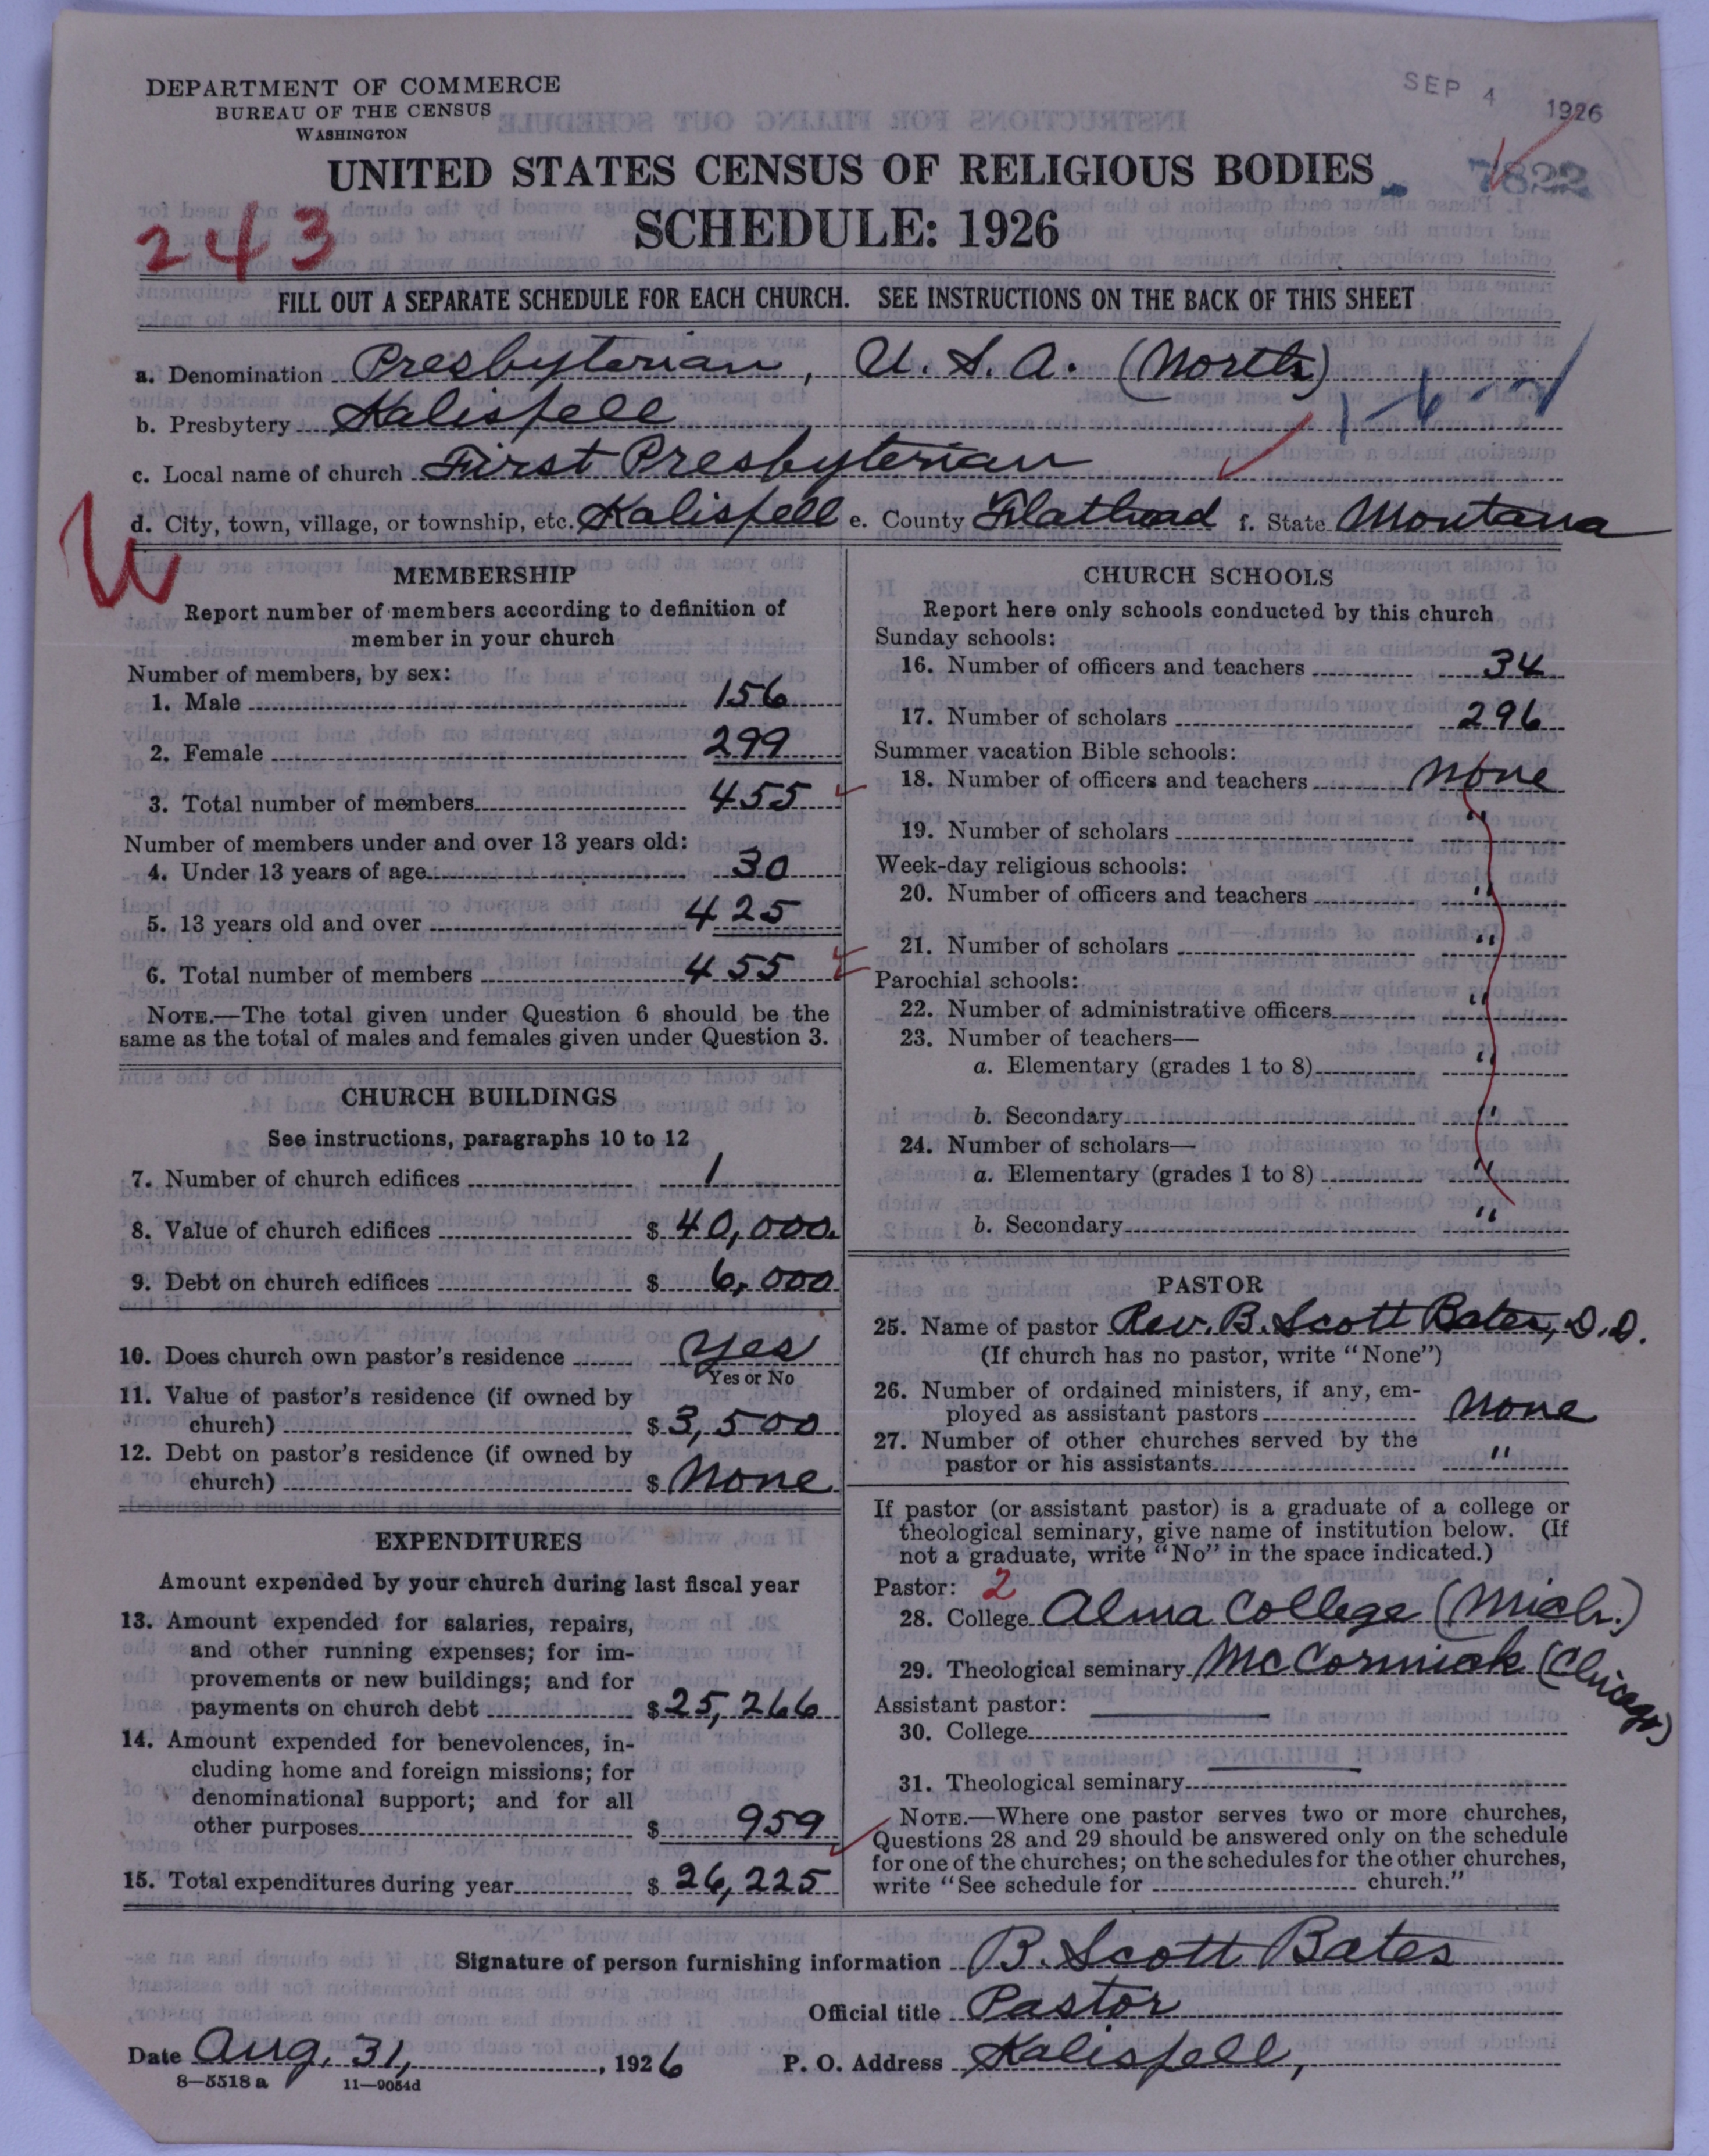 DEPARTMENT OF COMMERCE
BUREAU OF THE CENSUS
WASHINGTON
SEP 4 1926
UNITED STATES CENSUS OF RELIGIOUS BODIES
7822
SCHEDULE: 1926
243
FILL OUT A SEPARATE SCHEDULE FOR EACH CHURCH. SEE INSTRUCTIONS ON THE BACK OF THIS SHEET
a. Denomination Presbyterian, U.S.A. (North)
b. Presbytery Kalispell
c. Local name of church First Presbyterian
d. City, town, village, or township, etc. Kalispell e. County Flathead f. State Montana
MEMBERSHIP
Report number of members according to definition of
member in your church
Number of members, by sex:
1. Male 156
2. Female 299
3. Total number of members 455
Number of members under and over 13 years old:
4. Under 13 years of age 30
5. 13 years old and over 425
6. Total number of members 455
NOTE.—The total given under Question 6 should be the
same as the total of males and females given under Question 3.
CHURCH BUILDINGS
See instructions, paragraphs 10 to 12
7. Number of church edifices 1
8. Value of church edifices $ 40,000.
9. Debt on church edifices $ 6,000
10. Does church own pastor's residence Yes
Yes or No
11. Value of pastor's residence (if owned by
church) $ 3,500
12. Debt on pastor's residence (if owned by
church) $ None
EXPENDITURES
Amount expended by your church during last fiscal year
13. Amount expended for salaries, repairs,
and other running expenses; for im-
provements or new buildings; and for
payments on church debt $ 25,266
14. Amount expended for benevolences, in-
cluding home and foreign missions; for
denominational support; and for all
other purposes $ 959
15. Total expenditures during year $ 26,225
CHURCH SCHOOLS
Report here only schools conducted by this church
Sunday schools:
16. Number of officers and teachers 34
17. Number of scholars 296
Summer vacation Bible schools:
18. Number of officers and teachers None
19. Number of scholars "
Week-day religious schools:
20. Number of officers and teachers "
21. Number of scholars "
Parochial schools:
22. Number of administrative officers "
23. Number of teachers—
a. Elementary (grades 1 to 8) "
b. Secondary "
24. Number of scholars—
a. Elementary (grades 1 to 8) "
b. Secondary "
PASTOR
25. Name of pastor Rev. B. Scott Bates, D.D.
(If church has no pastor, write "None")
26. Number of ordained ministers, if any, em-
ployed as assistant pastors None
27. Number of other churches served by the
pastor or his assistants "
If pastor (or assistant pastor) is a graduate of a college or
theological seminary, give name of institution below. (If
not a graduate, write "No" in the space indicated.)
Pastor: 2
28. College Alma College (Mich.)
29. Theological seminary McCormick (Chicago)
Assistant pastor:
30. College
31. Theological seminary
NOTE.—Where one pastor serves two or more churches,
Questions 28 and 29 should be answered only on the schedule
for one of the churches; on the schedules for the other churches,
write "See schedule for church."
Signature of person furnishing information B. Scott Bates
Official title Pastor
Date Aug. 31, , 1926 P. O. Address Kalispell,
8—5518 a 11—9054d